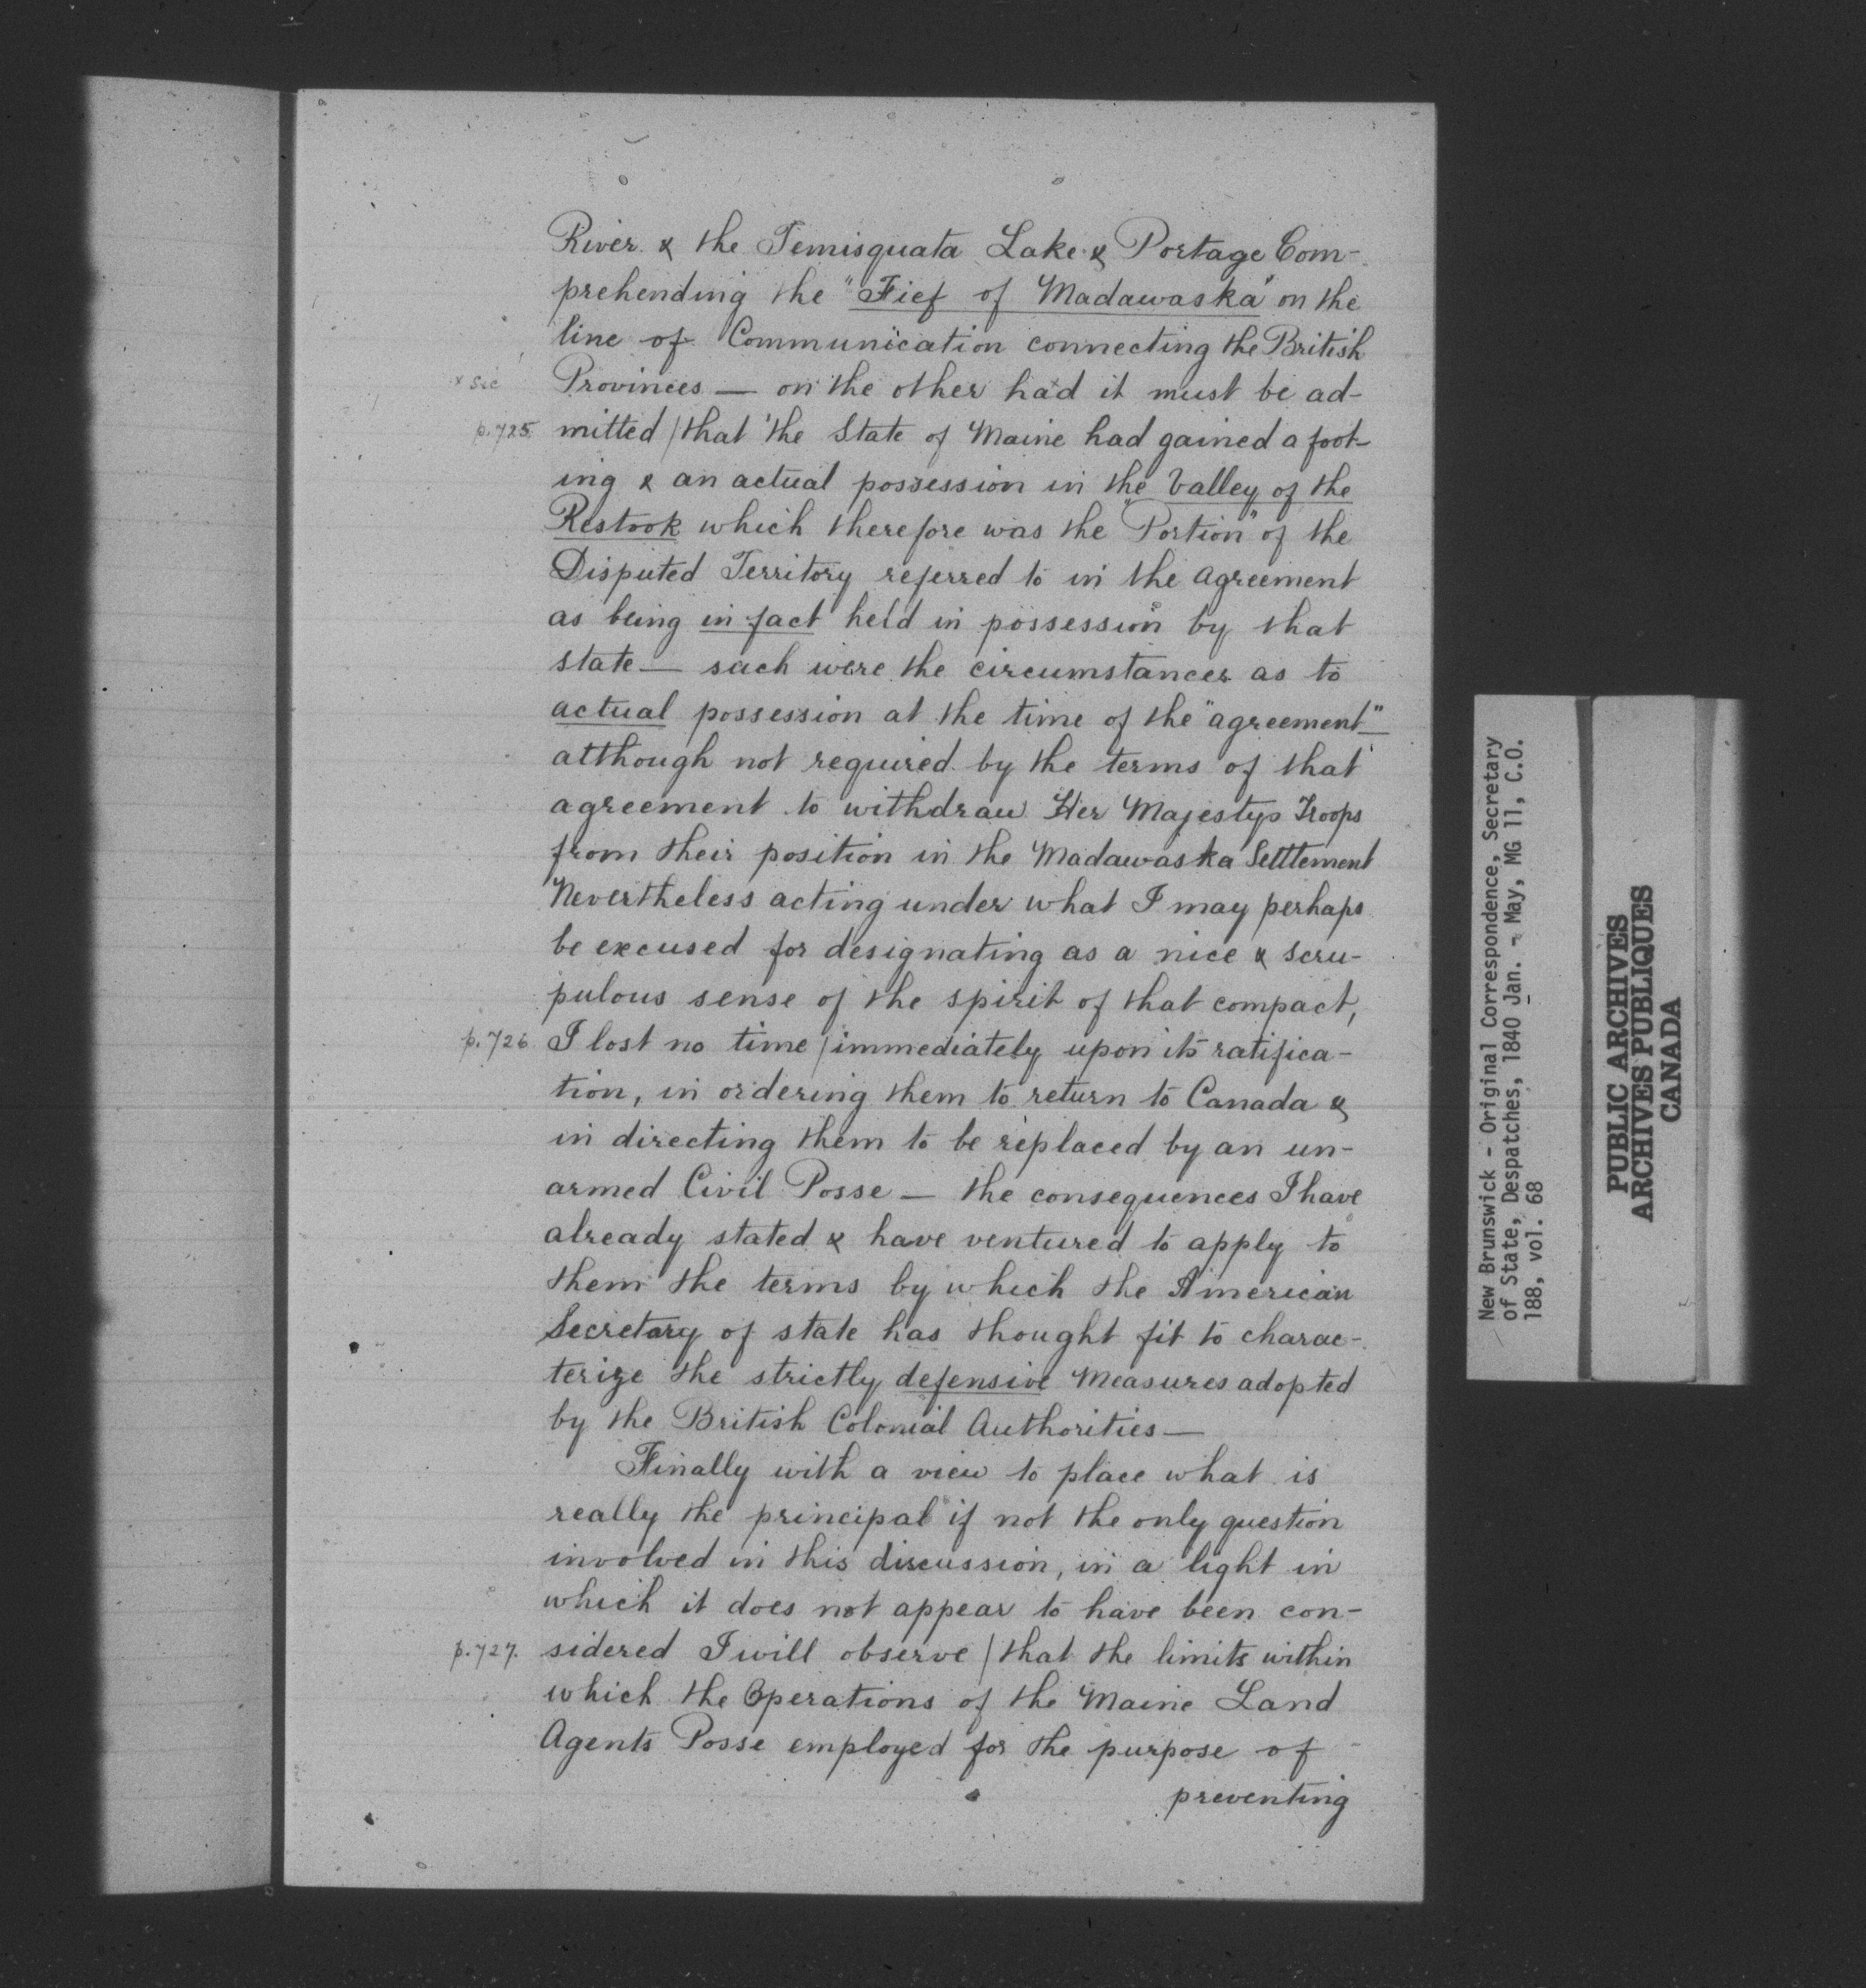 River & the Temisquata Lake & Portage Com-
prehending the "Fief of Madawaska" on the
line of Communication connecting the British
x sic Provinces — on the other hadx it must be ad-
p.725 mitted / that the State of Maine had gained a foot-
ing & an actual possession in the Valley of the
Restook which therefore was the "Portion" of the
Disputed Territory referred to in the agreement
as being in fact held in possession by that
state — such were the circumstances as to
actual possession at the time of the "agreement" —
although not required by the terms of that
agreement to withdraw Her Majestys Troops
from their position in the Madawaska Settlement
Nevertheless acting under what I may perhaps
be excused for designating as a nice & scru-
pulous sense of the spirit of that compact,
p.726 I lost no time / immediately upon its ratifica-
tion, in ordering them to return to Canada &
in directing them to be replaced by an un-
armed Civil Posse — the consequences I have
already stated & have ventured to apply to
them the terms by which the American
Secretary of state has thought fit to charac-
terize the strictly defensive measures adopted
by the British Colonial Authorities —
Finally with a view to place what is
really the principal if not the only question
involved in this discussion, in a light in
which it does not appear to have been con-
p.727. sidered I will observe / that the limits within
which the Operations of the Maine Land
Agents Posse employed for the purpose of
preventing
New Brunswick - Original Correspondence, Secretary
of State, Despatches, 1840 Jan. - May, MG 11, C.O.
188, vol. 68
PUBLIC ARCHIVES
ARCHIVES PUBLIQUES
CANADA